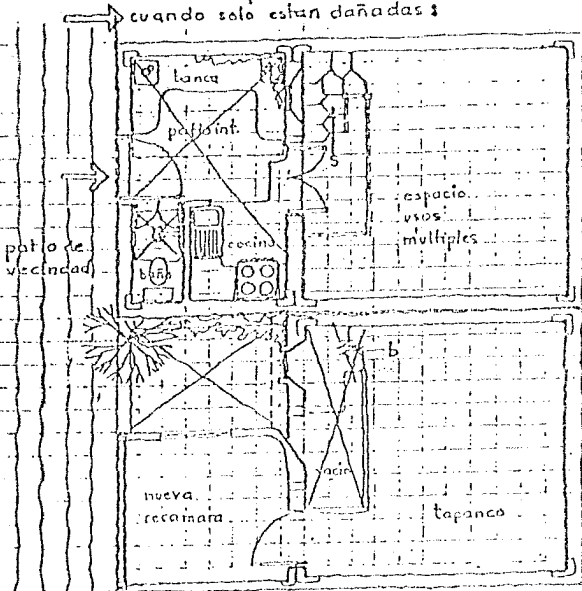 cuando solo estan dañadas:
banca
patio int.
s
espacio
usos
multiples
patio de
vecindad
cocina
baño
b
vacio
nueva
recamara
tapanco